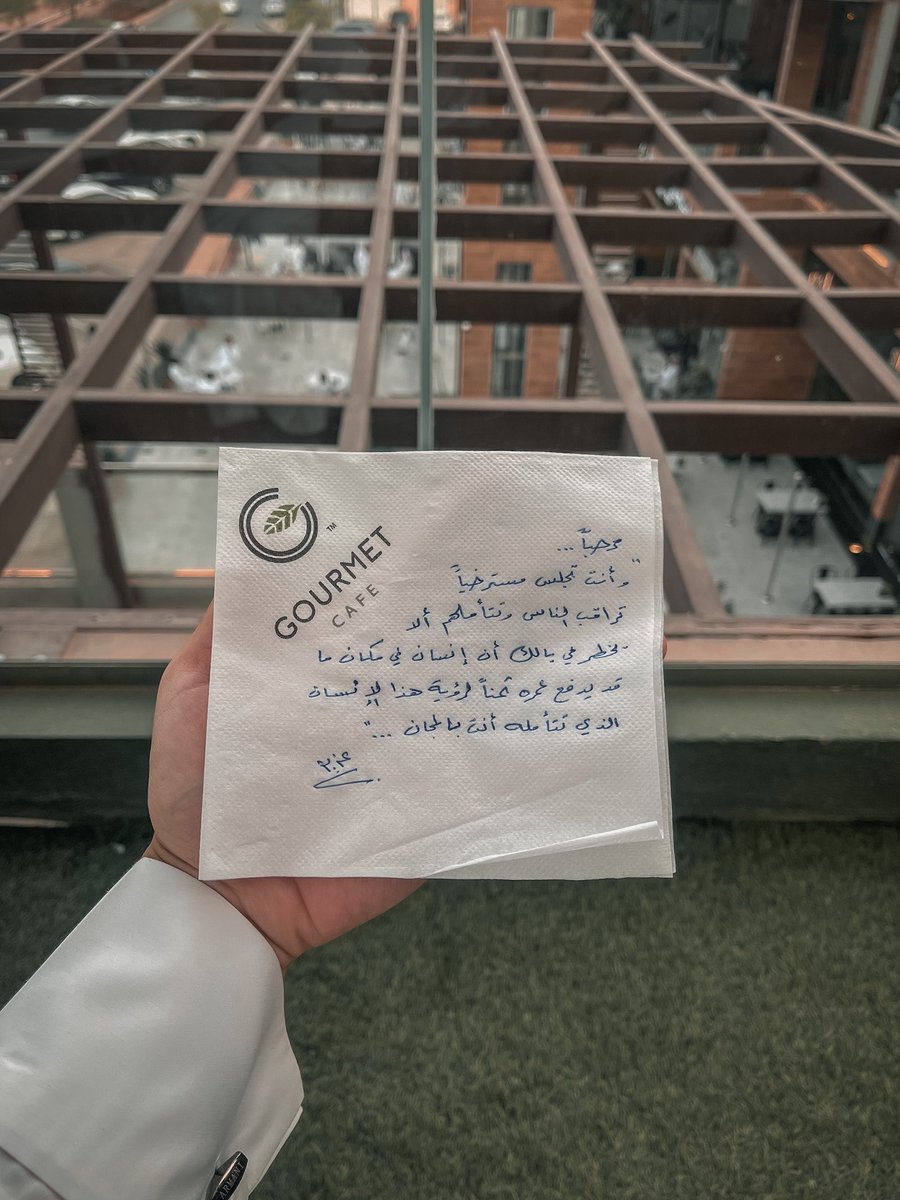 GOURMET
CAFE
TM
مرحباً ...
"وأنت تجلس مسترخياً
تراقب الناس وتتأملهم ألا
يخطر في بالك أن إنسان في مكان ما
قد يدفع عمره ثمناً لرؤية هذا الإنسان
الذي تتأمله أنت بالمجان ..."
ARMANI